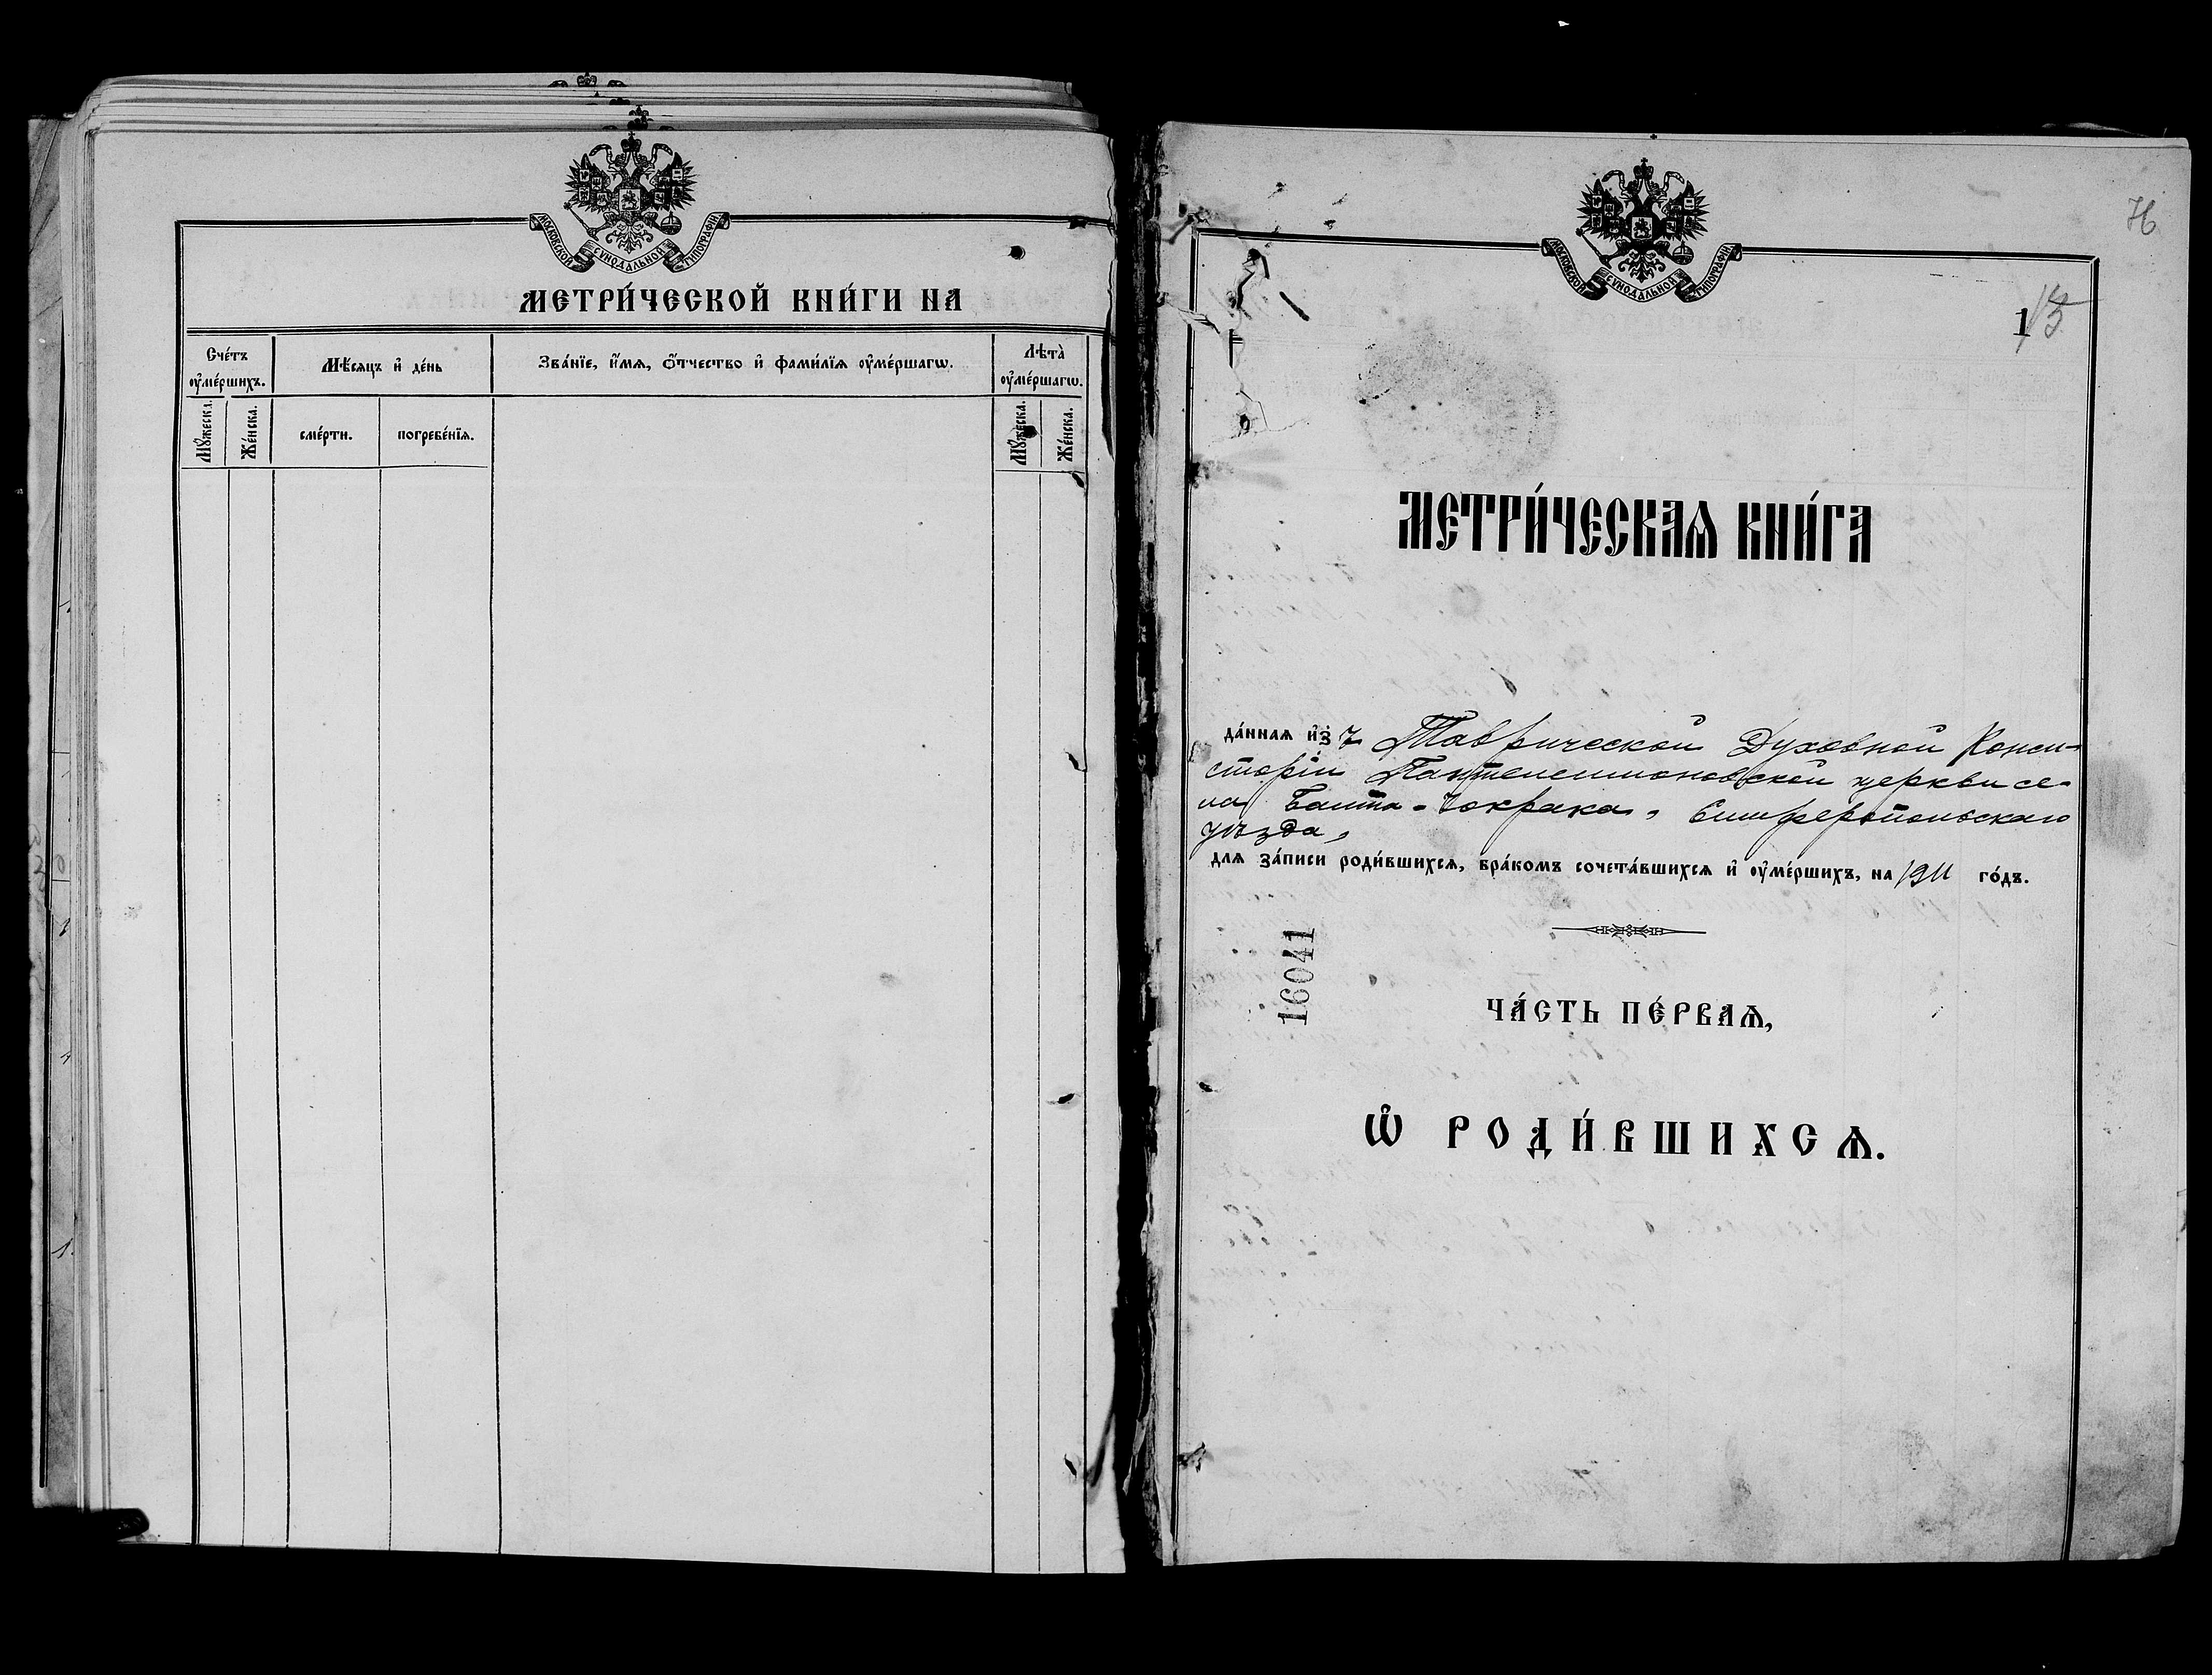 МОСКОВСКОЙ СѴНОДАЛЬНОЙ ТИПОГРАФІИ
МЕТРИ́ЧЕСКОЙ КНИ́ГИ НА
Сче́тъ ᲂу҆ме́ршихъ.
Мѣ́сяцъ и҆ де́нь
Зва́нїе, и҆́мя, ѻ҆́тчество и҆ фами́лїѧ ᲂу҆ме́ршагѡ.
Лѣта̀ ᲂу҆ме́ршагѡ.
Мꙋ́жеска.
Же́нска.
сме́рти.
погребе́нїѧ.
Мꙋ́жеска.
Же́нска.
76
МОСКОВСКОЙ СѴНОДАЛЬНОЙ ТИПОГРАФІИ
1
МЕТРИ́ЧЕСКАѦ КНИ́ГА
да́ннаѧ и҆зъ Таврической Духовной Конси-
сторіи Пантелеимоновской церкви се-
ла Башта-Чокрака, Симферопольскаго
уѣзда,
для за́писи роди́вшихсѧ, бра́комъ сочета́вшихсѧ и҆ ᲂу҆ме́ршихъ, на 1911 го́дъ.
16041
ЧА́СТЬ ПЕ́РВАѦ,
Ѡ҆ РОДИ́ВШИХСѦ.